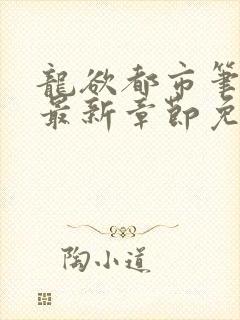 龍欲都市筆
最新章節免
陶小道